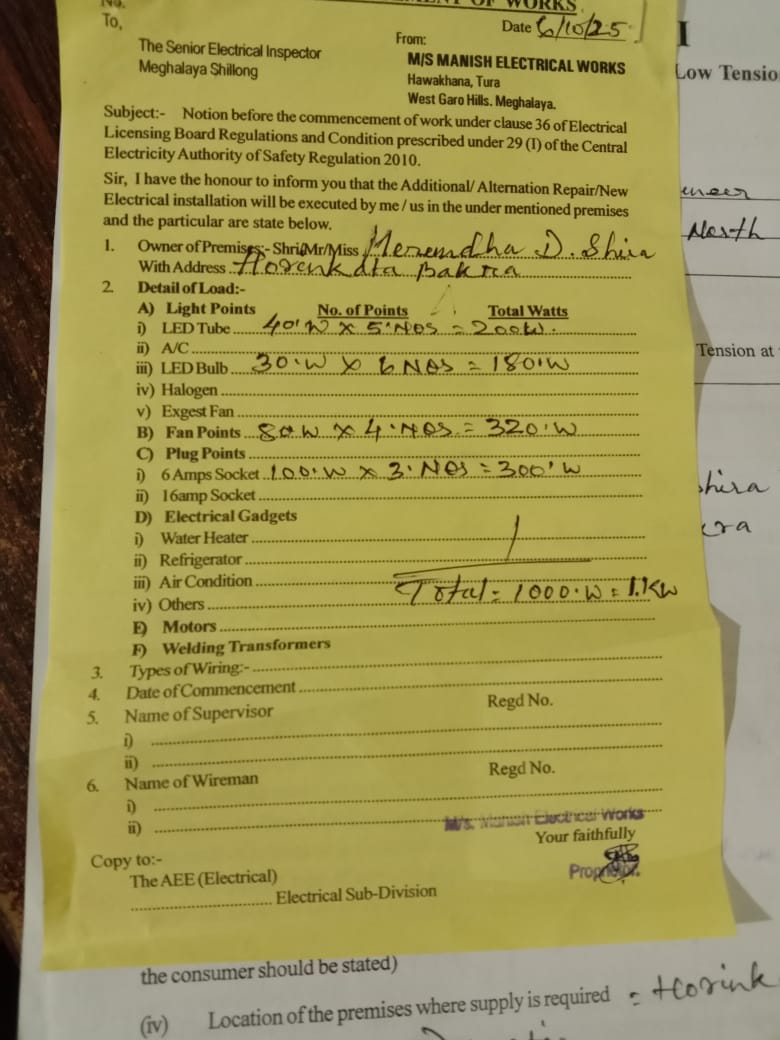 No.
OF WORKS
Date 6/10/25
To,
The Senior Electrical Inspector
Meghalaya Shillong
From:
M/S MANISH ELECTRICAL WORKS
Hawakhana, Tura
West Garo Hills. Meghalaya.
Subject:- Notion before the commencement of work under clause 36 of Electrical
Licensing Board Regulations and Condition prescribed under 29 (I) of the Central
Electricity Authority of Safety Regulation 2010.
Sir, I have the honour to inform you that the Additional/ Alternation Repair/New
Electrical installation will be executed by me / us in the under mentioned premises
and the particular are state below.
1. Owner of Premises:- Shri/Mr/Miss Merendha D. Shira
With Address Horenkdta Bakra
2. Detail of Load:-
A) Light Points No. of Points Total Watts
i) LED Tube 40'W x 5'NOS = 200W.
ii) A/C
iii) LED Bulb 30.W x 6 NOS = 180.W
iv) Halogen
v) Exgest Fan
B) Fan Points 80W x 4.NOS. = 320.W
C) Plug Points
i) 6 Amps Socket 100.W x 3.NOS = 300'W
ii) 16amp Socket
D) Electrical Gadgets
i) Water Heater
ii) Refrigerator
iii) Air Condition
iv) Others Total = 1000.W = 1.1KW
E) Motors
F) Welding Transformers
3. Types of Wiring:-
4. Date of Commencement
5. Name of Supervisor Regd No.
i)
ii)
6. Name of Wireman Regd No.
i)
ii)
M/s. Manish Electrical Works
Your faithfully
Proprietor.
Copy to:-
The AEE (Electrical)
Electrical Sub-Division
the consumer should be stated)
(iv) Location of the premises where supply is required = Horink
I
Low Tensio
neer
North
Tension at
hira
kra